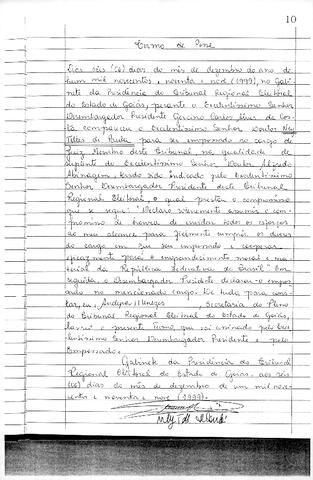 10
Termo de Posse
Aos seis (06) dias do mês de dezembro do ano de
hum mil novecentos e noventa e nove (1999), no Gabi-
nete da Presidência do Tribunal Regional Eleitoral
do Estado de Goiás, perante o Excelentíssimo Senhor
Desembargador Presidente Gercino Carlos Alves da Cos-
ta, compareceu o Excelentíssimo Senhor Doutor Ney
Teles de Paula para ser empossado no cargo de
Juiz Membro deste Tribunal na qualidade de
suplente do Excelentíssimo Senhor Doutor Alfredo
Abinagem, tendo sido indicado pelo Excelentíssimo
Senhor Desembargador Presidente deste Tribunal
Regional Eleitoral, o qual prestou o compromisso
que se segue: "Declaro solenemente assumir o com-
promisso de honra de envidar todos os esforços
ao meu alcance para fielmente cumprir os deveres
do cargo em que sou empossado e cooperar
eficazmente para o engrandecimento moral e ma-
terial da República Federativa do Brasil". Em
seguida, o Desembargador Presidente declarou-o empos-
sado no mencionado cargo. De tudo para cons-
tar, eu, Secretária do Pleno
do Tribunal Regional Eleitoral do Estado de Goiás,
lavrei o presente Termo, que vai assinado pelo Exce-
lentíssimo Senhor Desembargador Presidente e pelo
Empossado.
Gabinete da Presidência do Tribunal
Regional Eleitoral do Estado de Goiás, aos seis
(06) dias do mês de dezembro de um mil nove-
centos e noventa e nove (1999).